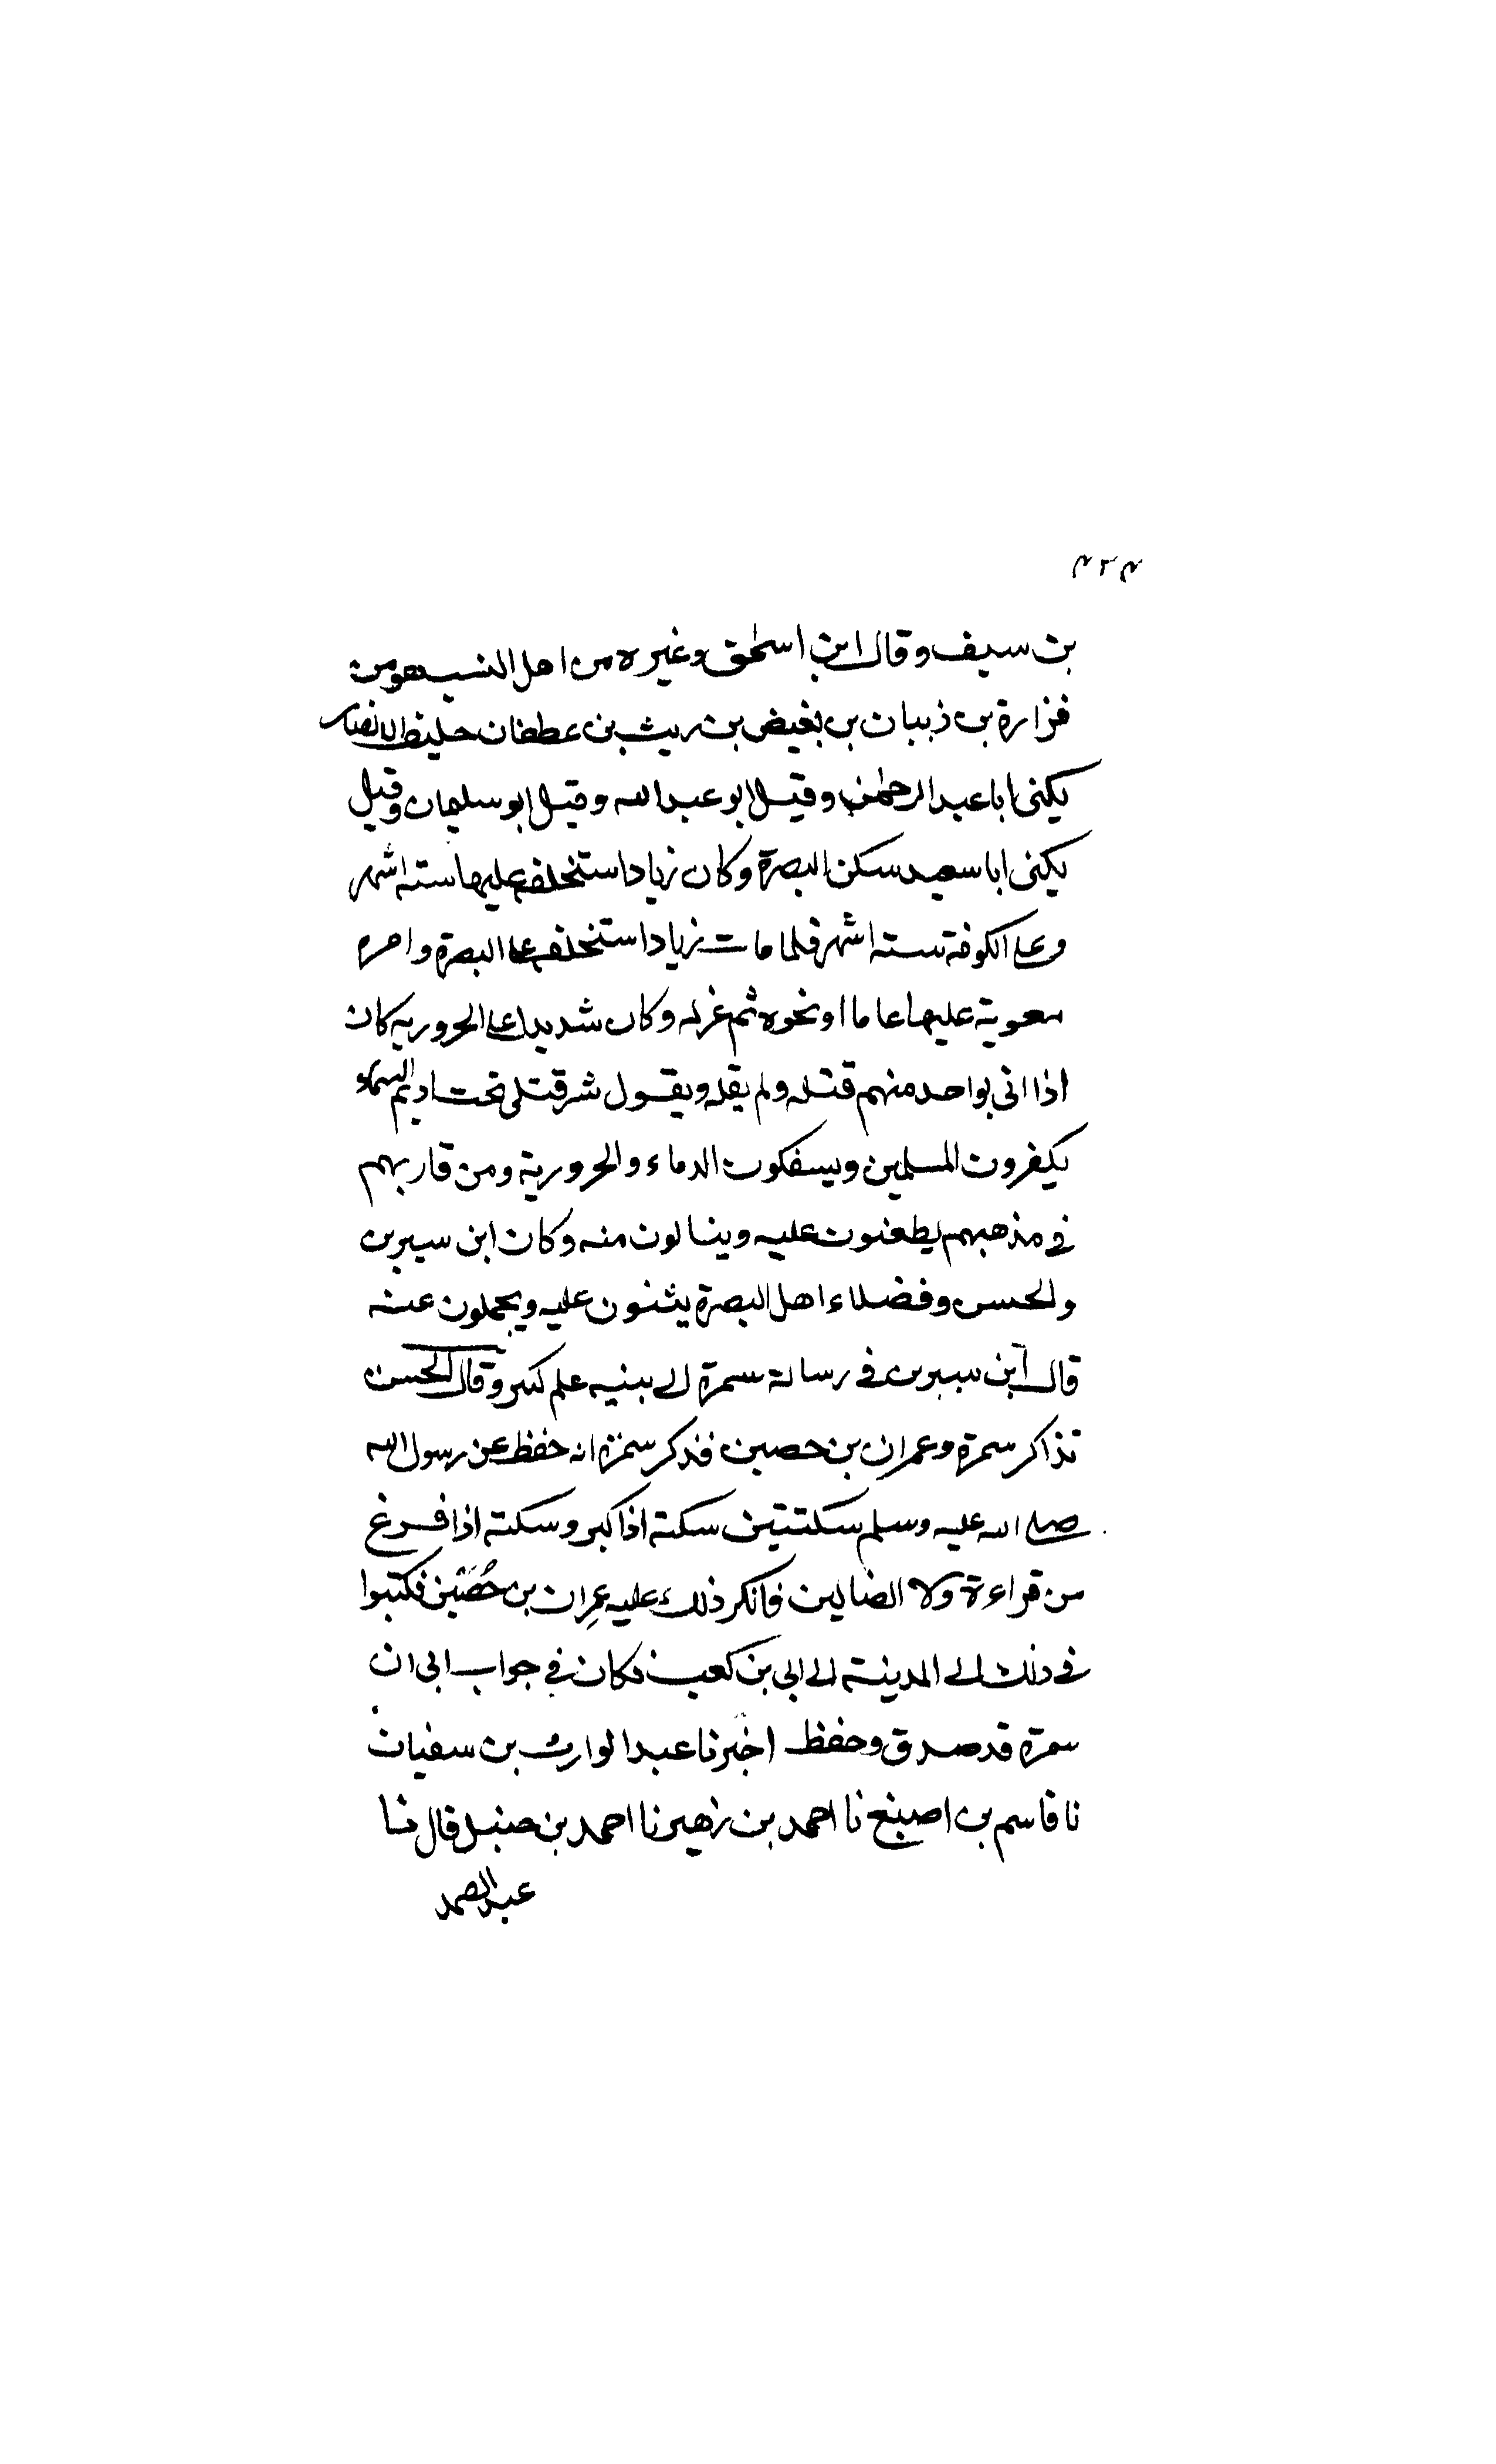 ٤٣٤
بن سيف وقال ابن اسحٰق وغيره من اهل النسب هو من
فزارة بن ذبيان بن بغيض بن ريث بن غطفان حليف الانصار
يكنى ابا عبد الرحمٰن وقيل ابو عبد الله وقيل ابو سليمان وقيل
يكنى ابا سعيد سكن البصرة وكان زياد استخلفه عليها ستة اشهر
وعلى الكوفة ستة اشهر فلما مات زياد استخلفه على البصرة واقره
معوية عليها عاما او نحوه ثم عزله وكان شديدا على الحرورية كان
اذا اتى بواحد منهم قتله ولم يقله ويقول شر قتلى تحت اديم السماء
يكفرون المسلمين ويسفكون الدماء والحرورية ومن قاربهم
في مذهبهم يطعنون عليه وينالون منه وكان ابن سيرين
والحسن وفضلاء اهل البصرة يثنون عليه ويحملون عنه
قال ابن سيرين في رسالة سمرة الى بنيه علم كثير وقال الحسن
تذاكر سمرة وعمران بن حصين فذكر سمرة انه حفظ عن رسول الله
صلى الله عليه وسلم سكتتين سكتة اذا كبر وسكتة اذا فرغ
من قراءة ولا الضالين فانكر ذلك عليه عمران بن حُصَين فكتبوا
في ذلك الى المدينة الى ابي بن كعب فكان في جواب ابي ان
سمرة قد صدق وحفظ اخبرنا عبد الوارث بن سفيان
نا قاسم بن اصبغ نا احمد بن زهير نا احمد بن حنبل قال نا
عبد الصمد